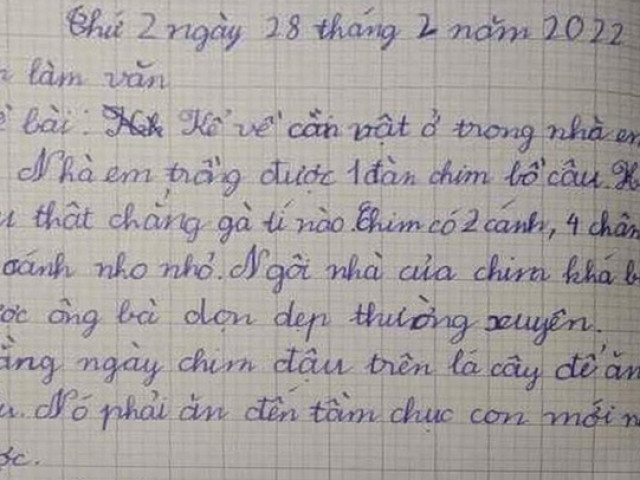 Thứ 2 ngày 28 tháng 2 năm 2022
làm văn
bài: Kể về cần vật ở trong nhà em
Nhà em trồng được 1 đàn chim bồ câu.
thật chẳng gà tí nào. Chim có 2 cánh, 4 chân
oánh nho nhỏ. Ngôi nhà của chim khá
ông bà dọn dẹp thường xuyên.
ngày chim đậu trên lá cây để ăn
Nó phải ăn đến tầm chục con mới